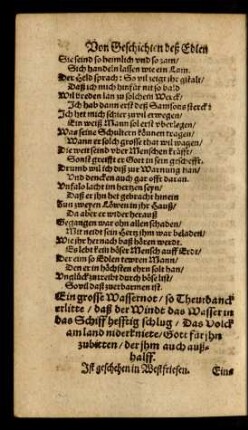 Von Geschichten deß Edlen
Sie seind so heimlich vnd so zam/
Sich handeln lassen wie ein Lam.
Der Held sprach: So vil zeigt ihr gstalt/
Daß ich mich hinfür nit so bald
Wil bereden lan zu solchem Werck/
Ich hab dann erst deß Samsons sterck:
Ich het mich schier zuvil erwegen/
Ein weiß Mann sol erst vberlegen/
Was seine Schultern können tragen/
Wann er solch grosse that wil wagen/
Die weit seind vber Menschen kräfft/
Sonst greifft er Gott in sein gescheffт.
Drumb wil ich diß zur Warnung han/
Vnd dencken auch gar offt daran.
Vnfalo lacht im hertzen seyn/
Daß er ihn het gebracht hinein
Zun zweyen Löwen in ihr Hauß/
Da aber er wider herauß
Gegangen war ohn allen schaden/
Mit neidt sein Hertz ihm war beladen/
Wie ihr hernach daß hören werdt.
Es lebt kein böser Mensch auff Erdt/
Der eim so Edlen tewren Mann/
Den er in höchsten ehrn solt han/
Vnglück zutreibt durch böse list/
So vil daß zuerbarmen ist.
Ein grosse Wassernot/ so Theurdanck
erlitte/ daß der Windt das Wasser in
das Schiff hefftig schlug/ Das Volck
am land niderkniete/ Gott für ihn
zubitten/ der ihm auch auß-
halff.
Ist geschehen in Westfriesen.
Ein=